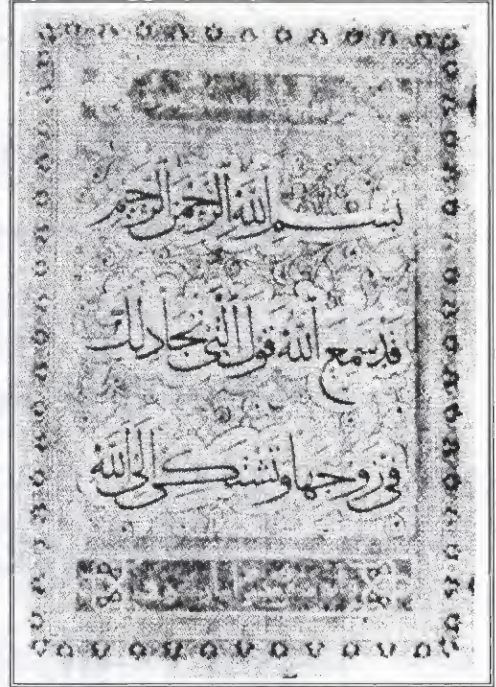 بسم الله الرحمن الرحيم
قد سمع الله قول التي تجادلك
في زوجها وتشتكي إلى الله